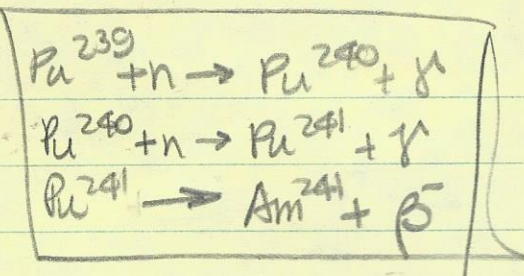 Pu²³⁹ + n → Pu²⁴⁰ + γ
Pu²⁴⁰ + n → Pu²⁴¹ + γ
Pu²⁴¹ → Am²⁴¹ + β⁻